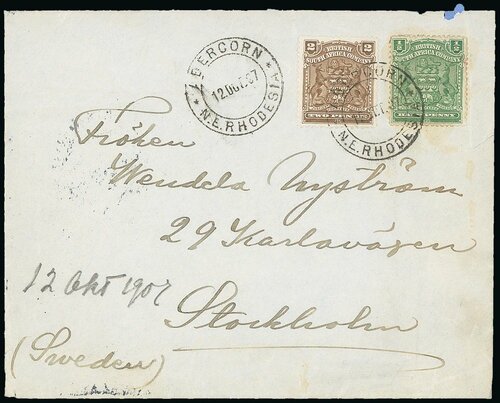 ABERCORN
12.OCT.07
N.E.RHODESIA
2 2
BRITISH
SOUTH AFRICA COMPANY
TWO PENCE
1/2 1/2
BRITISH
SOUTH AFRICA COMPANY
PENNY
CORN
N.E.RHODESIA
Fröken
Wendela Nyström
29 Karlavägen
12 Okt 1907
Stockholm
(Sweden)